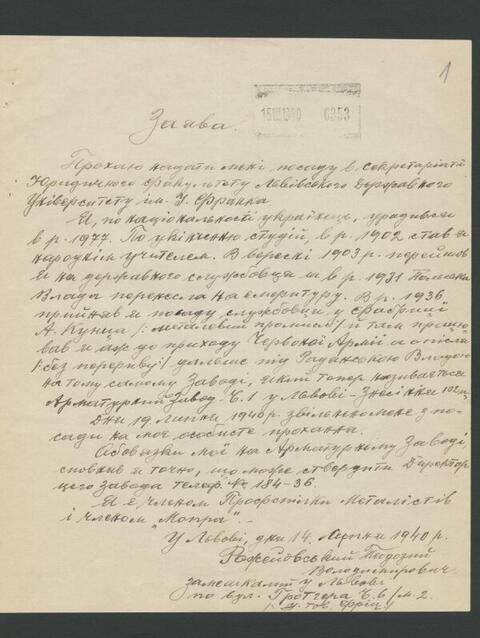 1
15 VIII 1940 6253
Заява.
Прохаю надати мені посаду в секретаріяті
Юридичного Факультету Львівського Державного
Університету ім. І. Франка.
Я, по національности українець, уродився
в р. 1877. По укінченню студій, в р. 1902 став я
народнім учителем. В вересні 1903 р. перейшов
я на державного службовця а в р. 1931 Польська
Влада перенесла на емеритуру. В р. 1936
прийняв я посаду службовця у фабриці
А. Кунца /: металевий промисл :/ і там працю-
вав я аж до приходу Червоної Армії а опісля
/: без перериву :/ дальше під Радянською Владою
на тому самому Заводі, який тепер називається
Арматурний Завод Ч. 1 у Львові - Знесіння
Дня 19 липня 1940 р. звільнено мене з по-
сади на моє особисте прохання.
Обовязки мої на Арматурному Заводі
сповняв я точно, що може ствердити Директор
цего Завода телеф. № 184-36.
Я є членом Профспілки Металістів
і членом „Мопра".
У Львові, дня 14 серпня 1940 р.
Теодозій
Володимирович
замешкалий у Львові
по вул. Гротгера Ч. 6 / м. 2.